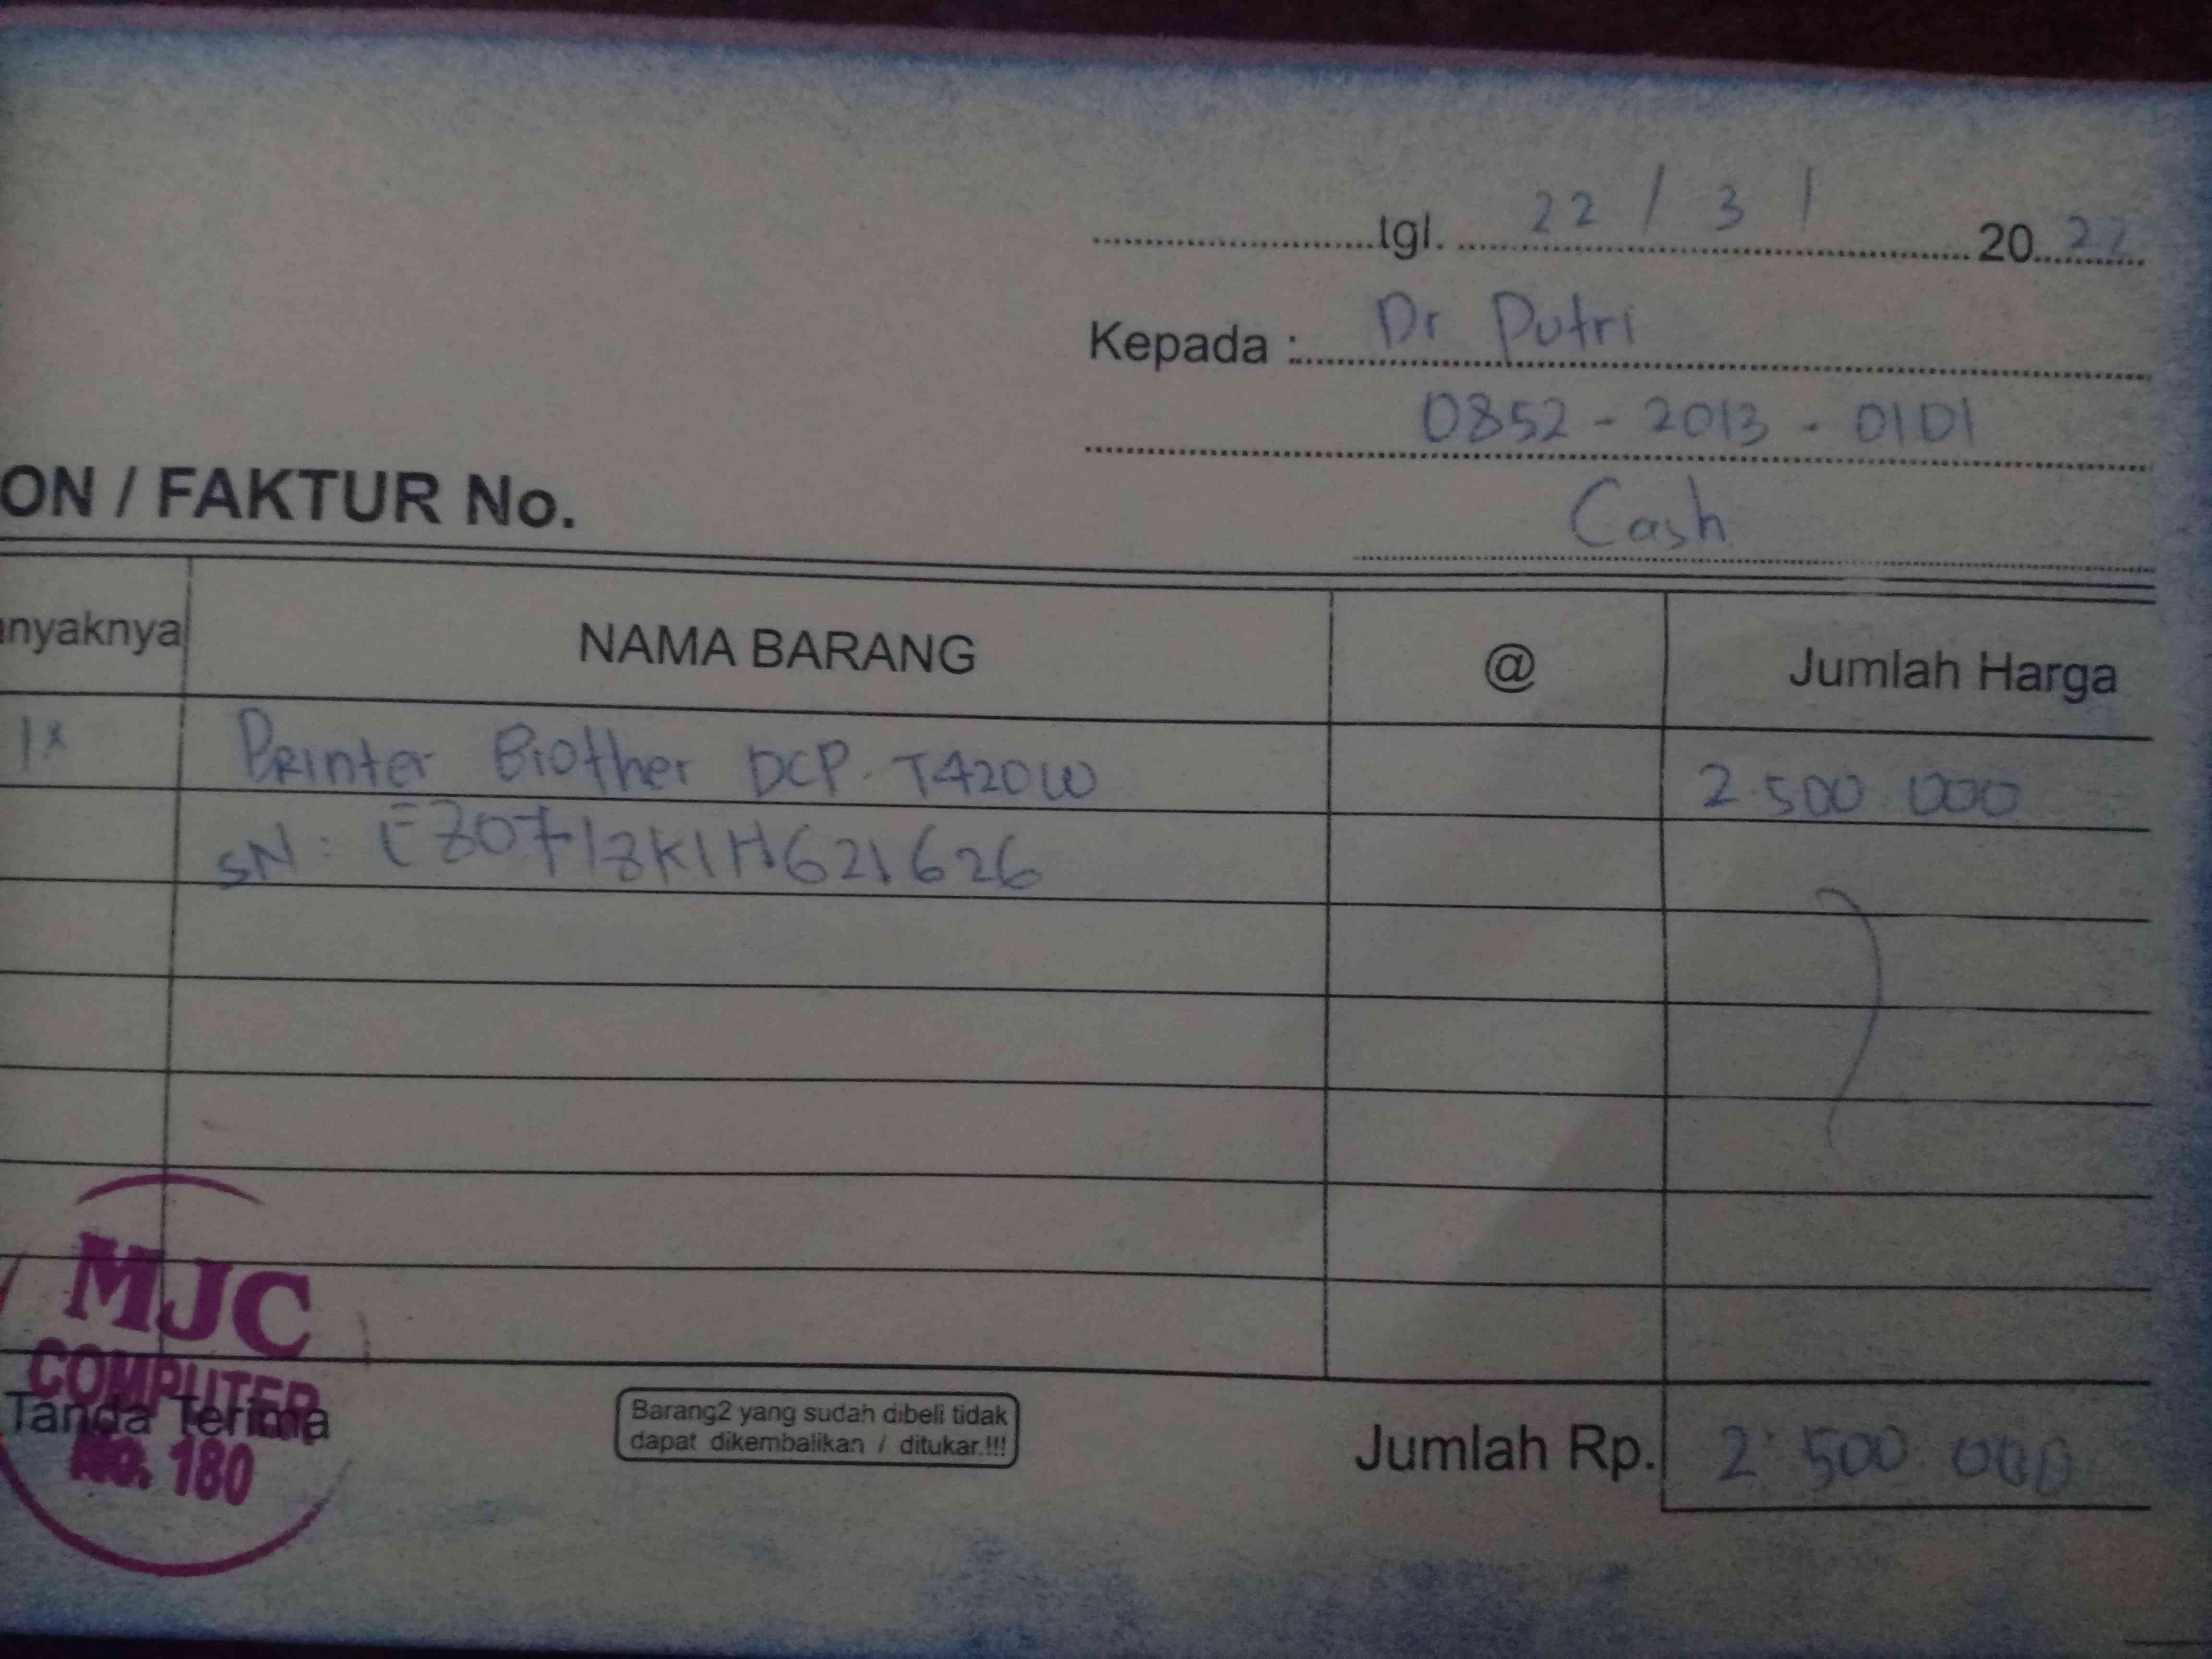 tgl. 22 / 3 / 2022
Kepada : Dr Putri
0852 - 2013 - 0101
ON / FAKTUR No.
Cash
anyaknya NAMA BARANG @ Jumlah Harga
1x Printer Brother DCP. T420W 2 500 000
SN:
MJC
COMPUTER
Tanda Terima
No. 180
Barang2 yang sudah dibeli tidak
dapat dikembalikan / ditukar.!!!
Jumlah Rp. 2 500 000